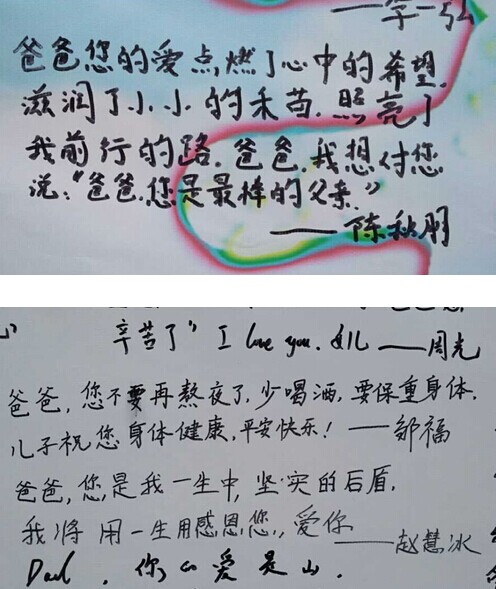 ——李一弘
爸爸您的爱点燃了心中的希望.
滋润了小小的禾苗.照亮了
我前行的路.爸爸.我想对您
说:“爸爸.您是最棒的父亲.”
——陈秋朋
辛苦了” I love you. 女儿——周光
爸爸,您不要再熬夜了,少喝酒,要保重身体.
儿子祝您身体健康,平安快乐!——邹福
爸爸,您是我一生中,坚实的后盾.
我将用一生用感恩您,爱你
——赵慧冰
Dad.你的爱是山.